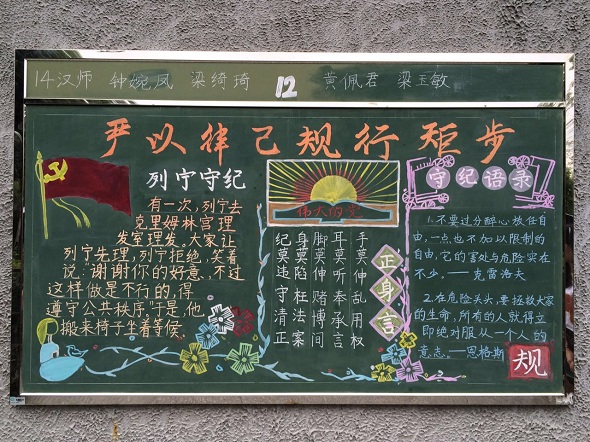 14汉师 钟婉凤 梁绮琦 12 黄佩君 梁玉敏
严以律己规行矩步
列宁守纪
有一次,列宁去
克里姆林宫理
发室理发。大家让
列宁先理,列宁拒绝,笑着
说:“谢谢你的好意,不过
这样做是不行的,得
遵守公共秩序。”于是,他
搬来椅子坐着等候。
伟大的
正身言
手莫伸乱用权
耳莫听奉承言
脚莫伸赌博间
身莫陷枉法案
纪莫违守清正
守纪语录
1.不要过分醉心放任自
由,一点也不加以限制的
自由,它的害处与危险实在
不少。——克雷洛夫
2.在危险关头,要拯救大家
的生命,所有的人就得立
即绝对服从一个人的
意志。——恩格斯
规